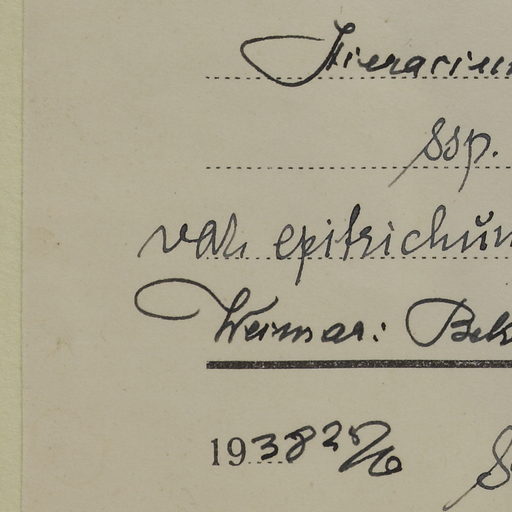 Hieracium
ssp.
var. epitrichum
Weimar: Bel
1938 25/6 S